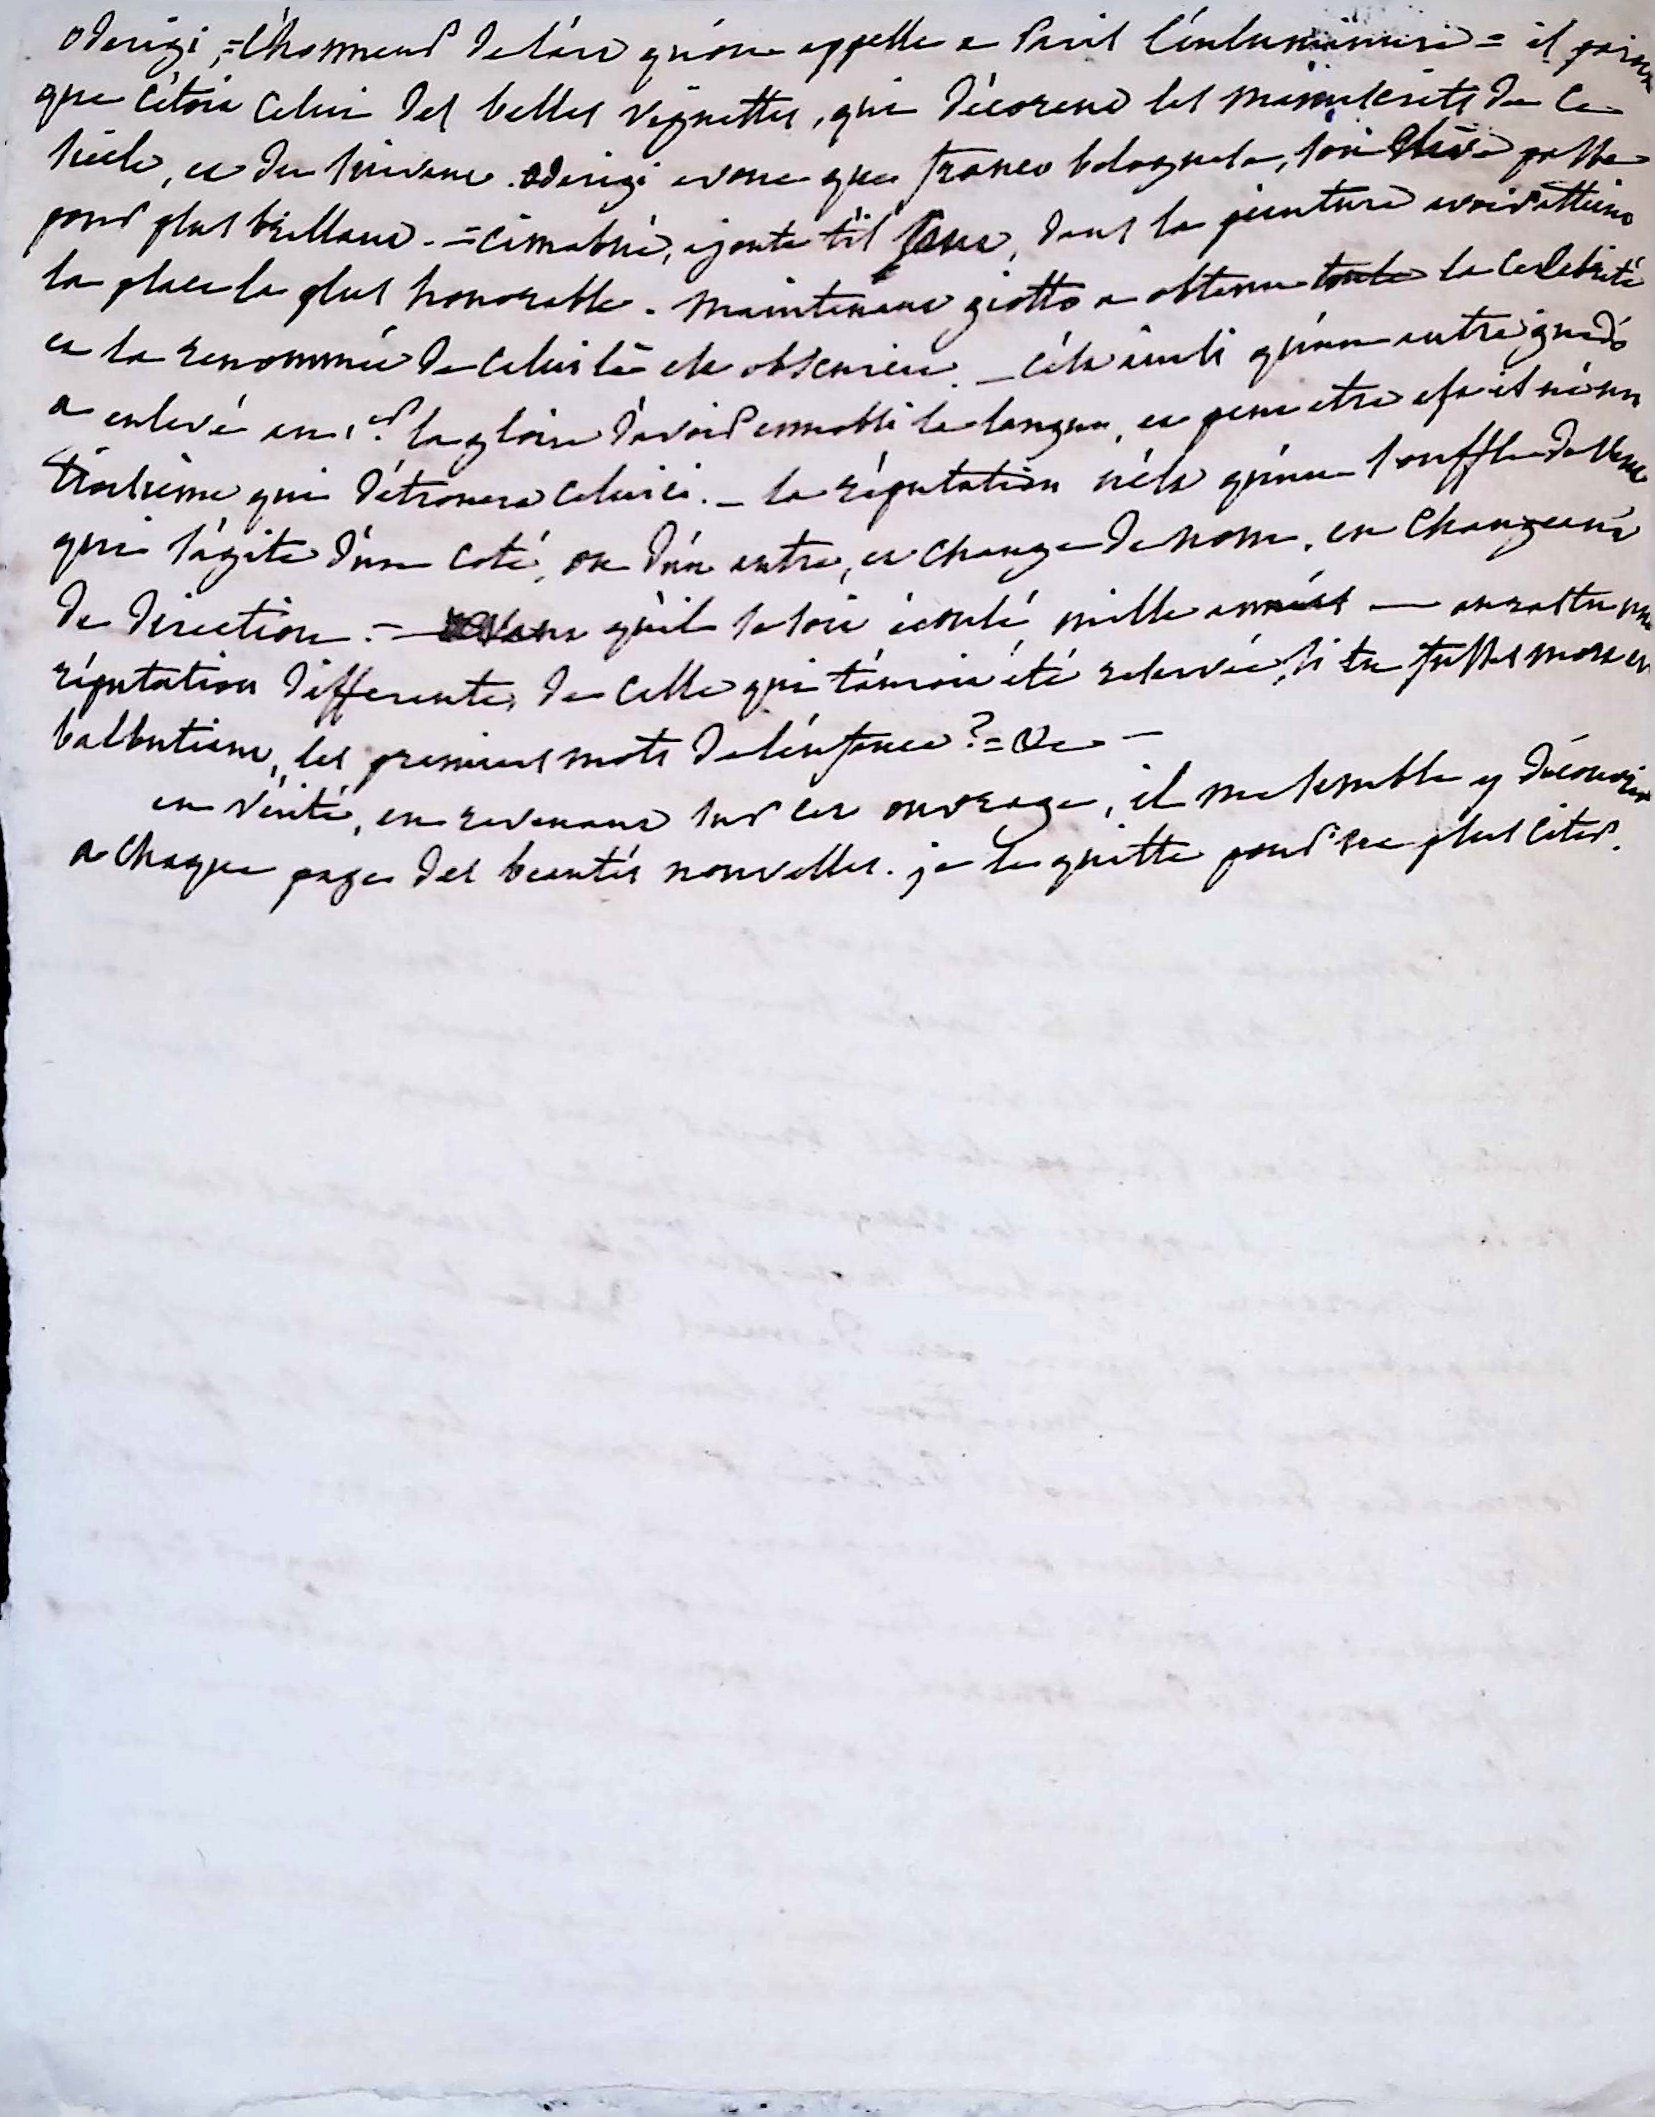 oderigi, = l'honneur de l'art qu'on appelle a Paris l'enluminure = il paroit
que c'étoit celui des belles vignettes, qui décorent les manuscrits de ce
siècle, et du suivant. oderigi avoue que franco bolognese, son élève passe
pour plus brillant. = cimabué, ajoute t'il, dans la peinture avoir atteint
la place la plus honorable. maintenant giotto a obtenu toute la celebrité
et la renommée de celui là est obscurcie. _ c'est ainsi qu'un autre guido
a enlevé au 1.er la gloire d'avoir ennobli la langue, et peut etre est il né un
troisieme qui détronera celui ci. _ la réputation n'est qu'un souffle de vent
qui s'agite d'un coté, ou d'un autre, et change de nom, en changeant
de direction. = avant qu'il se soit écoulé mille années — auras tu une
réputation differente, de celle qui t'auroit été reservée, si tu fusses mort en
balbutiant, les premiers mots de l'enfance ? = &c —
en vérité, en revenant sur cet ouvrage, il me semble y découvrir
a chaque page des beautés nouvelles. je le quitte pour ne plus citer.